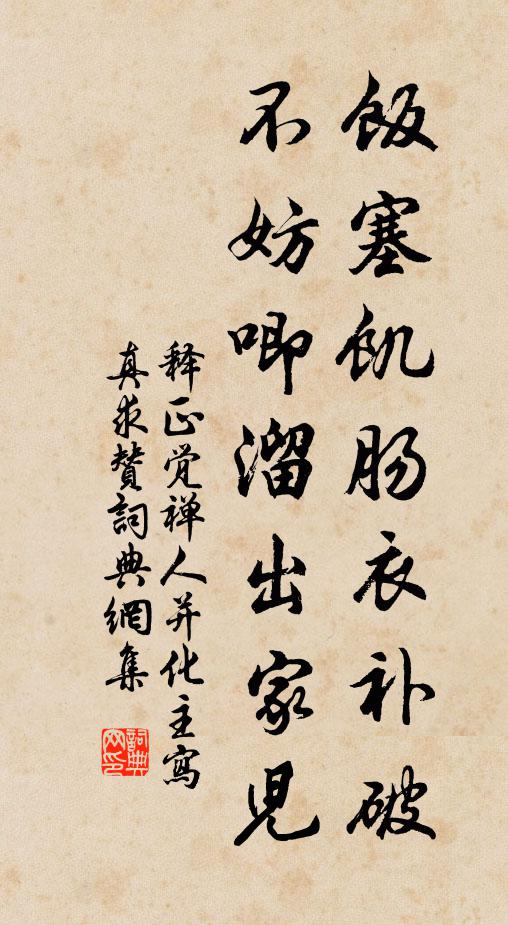 飯塞飢肠衣补破
不妨唧溜出家児
释正觉禅人并化主寫
真求赞詞典網集
詞典網印